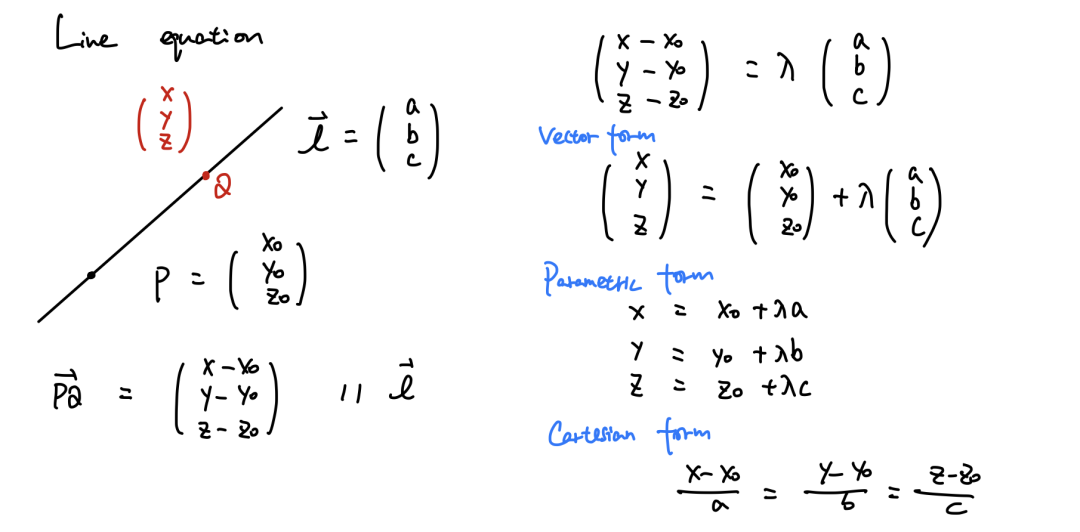 Line equation
(x y z)
Q
l⃗ = (a b c)
P = (x₀ y₀ z₀)
PQ⃗ = (x - x₀ y - y₀ z - z₀) // l⃗
(x - x₀ y - y₀ z - z₀) = λ (a b c)
Vector form
(x y z) = (x₀ y₀ z₀) + λ (a b c)
Parametric form
x = x₀ + λa
y = y₀ + λb
z = z₀ + λc
Cartesian form
(x - x₀)/a = (y - y₀)/b = (z - z₀)/c